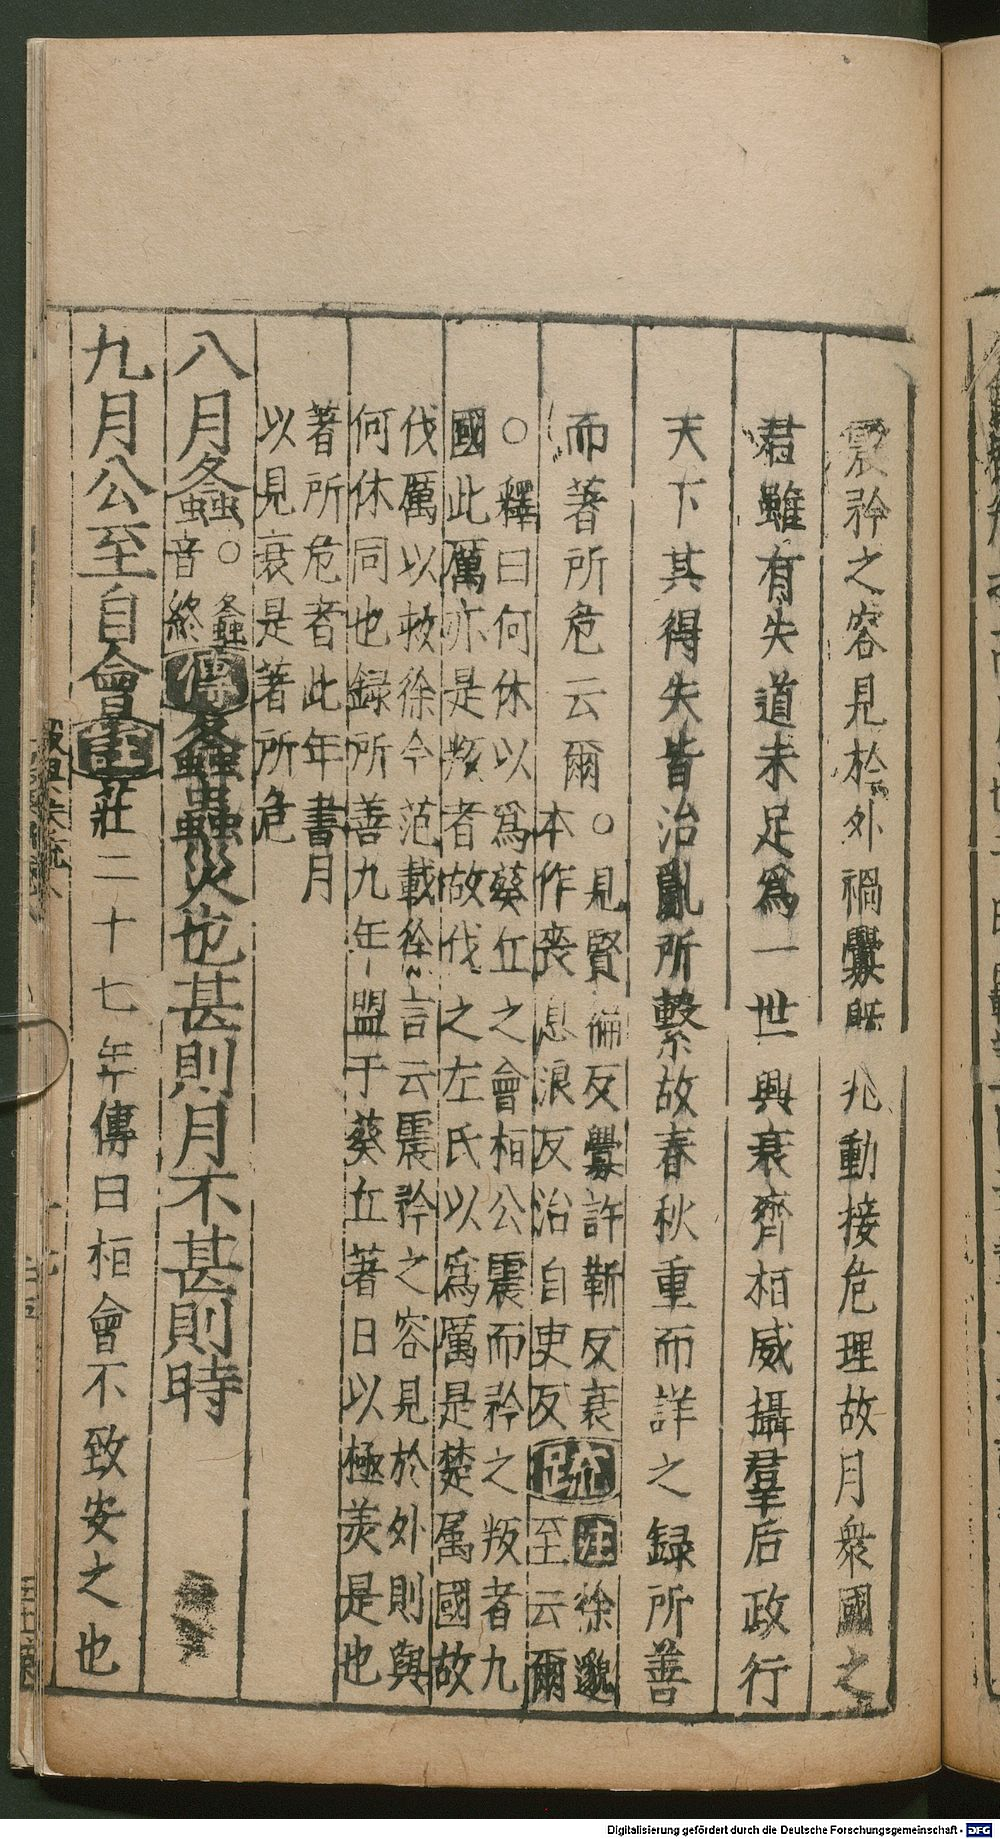 震矜之容見於外禍釁旣兆動接危理故月衆國之
君雖有失道未足爲一世興衰齊栢威攝羣后政行
天下其得失皆治亂所繫故春秋重而詳之録所善
而著所危云爾
○見賢徧反釁許靳反衰
本作喪息浪反治自吏反
疏
注徐邈
至云爾
○釋曰何休以爲葵丘之會栢公震而矜之叛者九
國此厲亦是叛者故伐之左氏以爲厲是楚属國故
伐厲以救徐今范載徐邈言云震矜之容見於外則與
何休同也録所善九年盟于葵丘著日以極美是也
著所危者此年書月
以見衰是著所危
八月螽
○螽
音終
傳
螽蟲災也甚則月不甚則時
九月公至自會
注
莊二十七年傳曰栢會不致安之也
Digitalisierung gefördert durch die Deutsche Forschungsgemeinschaft - DFG